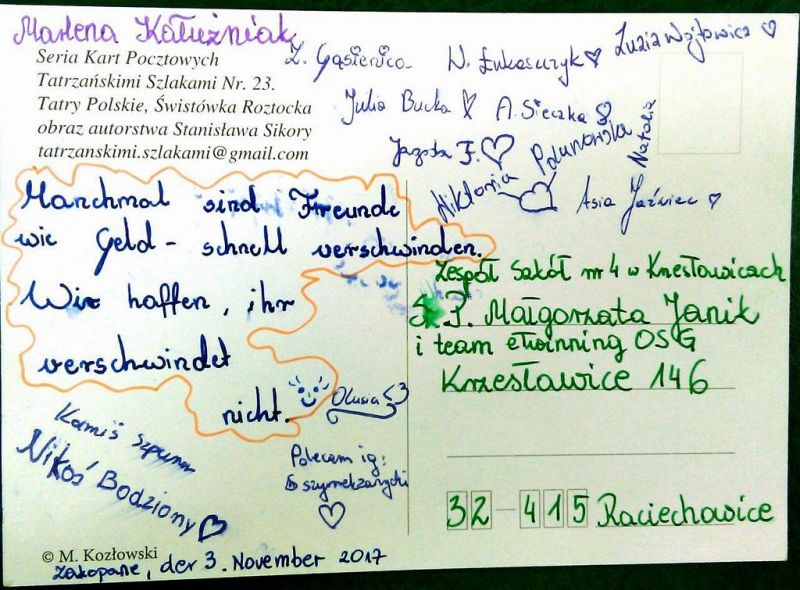 Marlena Kałuźniak
Seria Kart Pocztowych
Tatrzańskimi Szlakami Nr. 23.
Tatry Polskie, Świstówka Roztocka
obraz autorstwa Stanisława Sikory
tatrzanskimi.szlakami@gmail.com
Z. Gąsienica
W. Łukaszczyk
Luzia Wojtowicz
Julia Bucka
A. Sieczka
Jagoda F.
Wiktoria
Natalia
Asia Jaźwiec
Manchmal sind Freunde
wie Geld - schnell verschwinden.
Wir haffen, ihr
verschwindet
nicht.
Olusia <3
Zespół Szkół nr 4 w Krzesławicach
P. Małgorzata Janik
i team eTwinning OSG
Krzesławice 146
32-415 Raciechowice
Nikoś Bodziony
Polecam ig:
© M. Kozłowski
Zakopane, der 3. November 2017